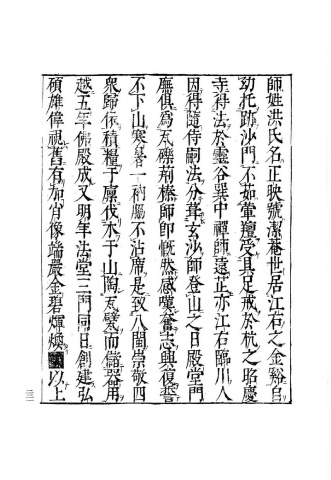 師姓洪氏名正映號潔菴世居江右之金谿自
幼托跡沙門不茹葷羶受具足戒於杭之昭慶
寺得法於靈谷巽中禪師遠芷亦江右臨川人
因得隨侍嗣法分葺玄沙師登山之日殿堂門
廡俱爲瓦礫荊榛師卽慨然感嘆奮志興復誓
不下山寒暑一衲脇不沾席是致八閩崇敬四
衆歸依積糧于廪伐木于山陶瓦甓而儲器用
越五年佛殿成又明年法堂三門同日創建弘
碩雄偉視舊有加肖像端嚴金碧煇煥 以上
三一